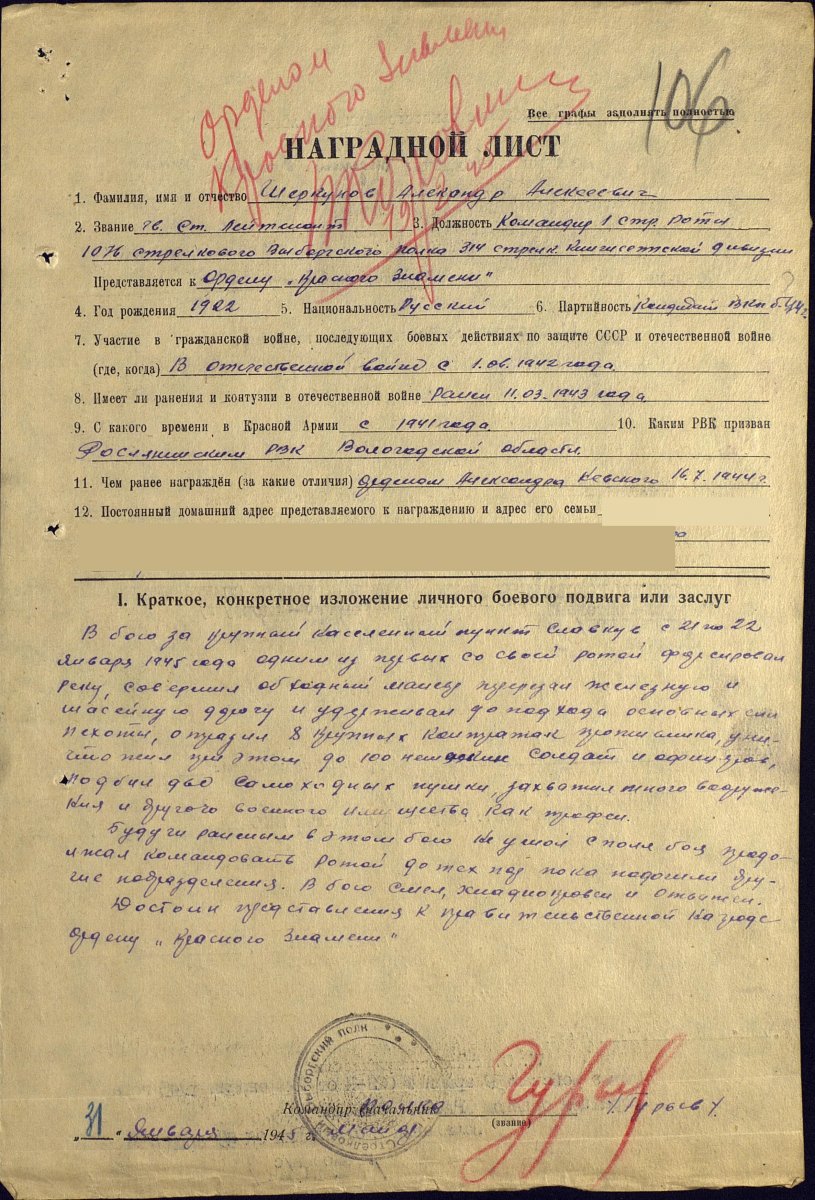 Орденом
Красного Знамени
106
Все графы заполнять полностью
НАГРАДНОЙ ЛИСТ
1. Фамилия, имя и отчество Шеркунов Александр Алексеевич
2. Звание гв. Ст. Лейтенант 3. Должность Командир 1 стр. роты
1076 стрелкового Выборгского полка 314 стрелк. Кингисеппской дивизии
Представляется к Ордену „Красного Знамени"
4. Год рождения 1922 5. Национальность Русский 6. Партийность Кандидат ВКП б.
7. Участие в гражданской войне, последующих боевых действиях по защите СССР и отечественной войне
(где, когда) В отечественной войне с 1.06.1942 года
8. Имеет ли ранения и контузии в отечественной войне Ранен 11.03.1943 года
9. С какого времени в Красной Армии с 1941 года 10. Каким РВК призван
Рослятинским РВК Вологодской области.
11. Чем ранее награждён (за какие отличия) Орденом Александра Невского 16.7.1944 г.
12. Постоянный домашний адрес представляемого к награждению и адрес его семьи
I. Краткое, конкретное изложение личного боевого подвига или заслуг
В бою за крупный населенный пункт Славкув с 21 по 22
января 1945 года одним из первых со своей ротой форсировал
реку, совершил обходный маневр перерезал железную и
шоссейную дорогу и удерживал до подхода основных сил
пехоты, отразил 8 крупных контратак противника, уни-
чтожил при этом до 100 немецких солдат и офицеров,
подбил две самоходных пушки, захватил много вооруже-
ния и другого военного имущества как трофеи.
Будучи раненым в этом бою не ушол с поля боя продо-
лжал командовать ротой до тех пор пока подошли дру-
гие подразделения. В бою смел, хладнокровен и отважен.
Достоин представления к правительственной награде
Ордену „Красного Знамени"
Выборгский полк
Стрелковый
Командир (начальник) полка
майор Гурьев
(звание)
„31" Января 1945 г.